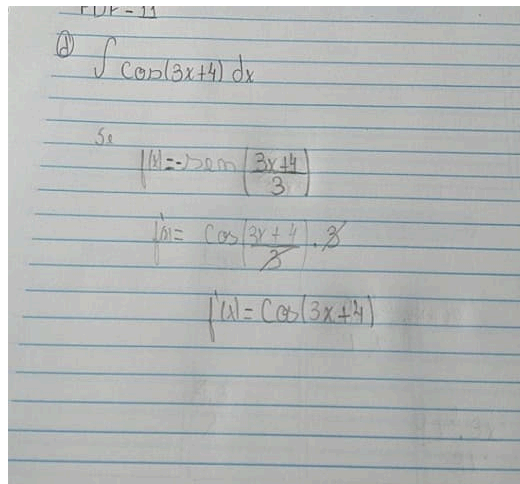 PDF-11
d) ∫ cos(3x+4) dx
Se
f(x)=-sen(3x+4/3)
f'(x)= cos(3x+4/3).3
f'(x)=cos(3x+4)